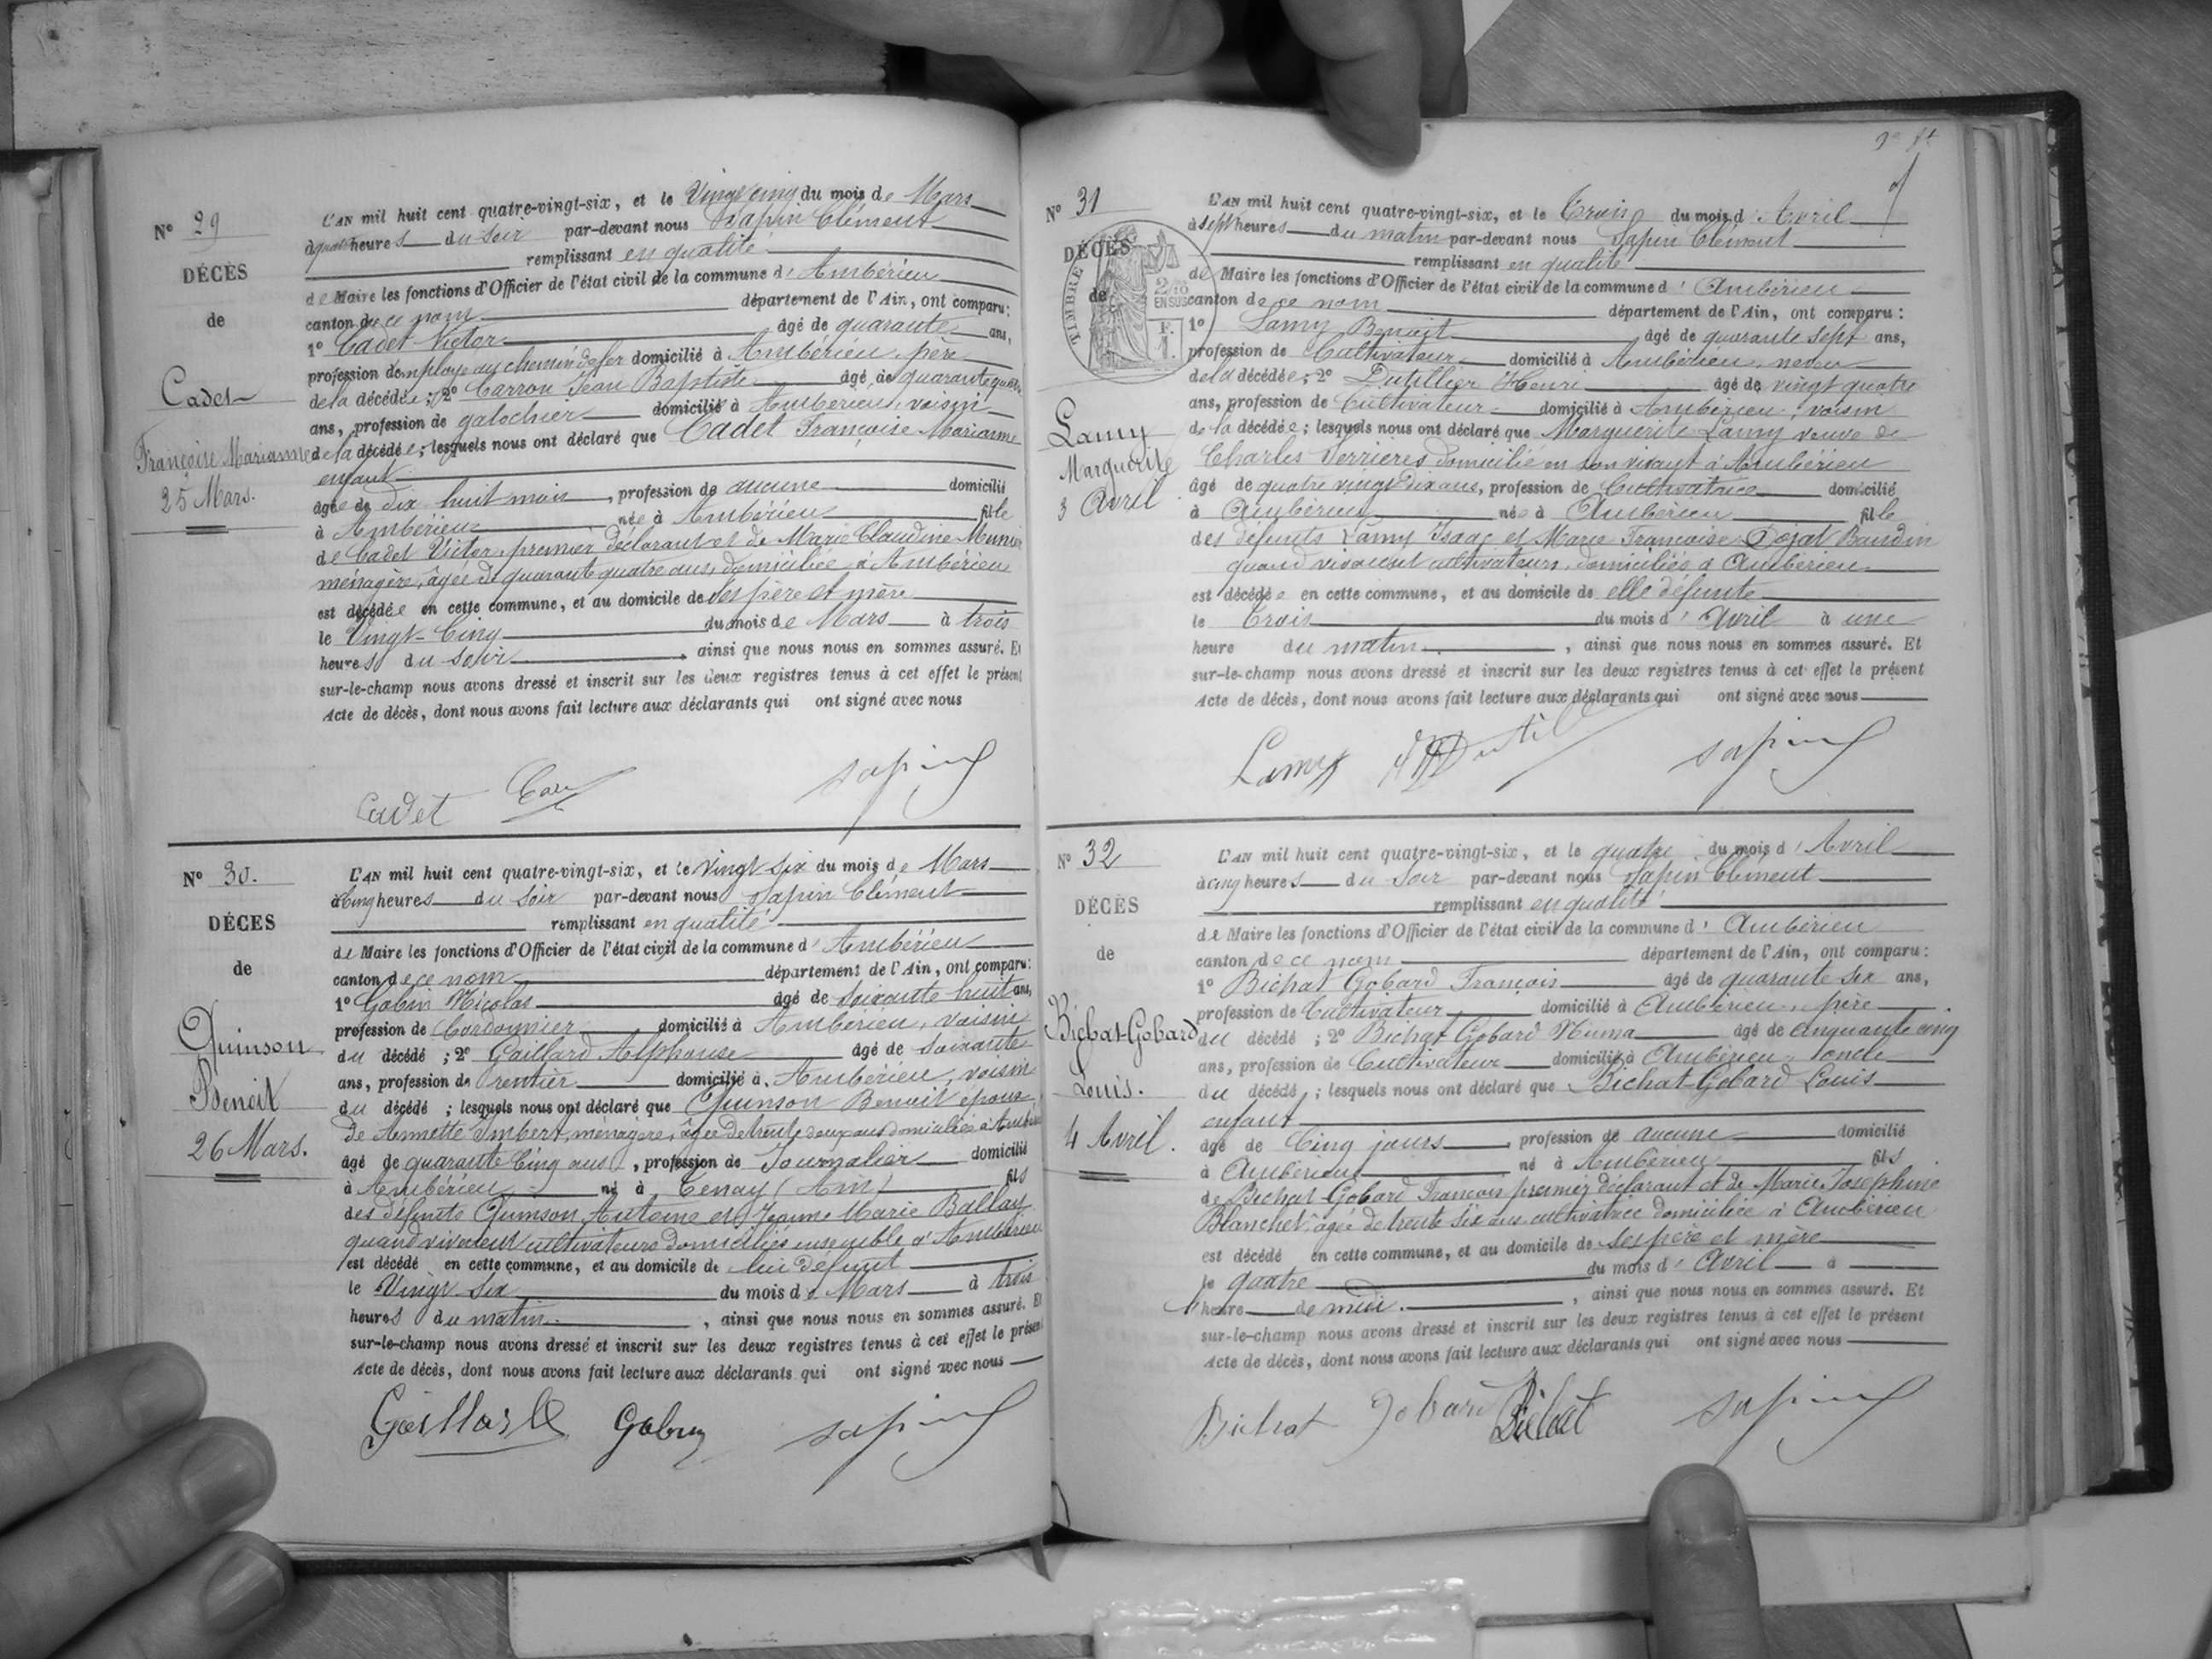 N° 29
DÉCÈS
de
Cadet
Françoise Marianne
25 Mars.
L'AN mil huit cent quatre-vingt-six, et le Vingt cinq du mois de Mars
à quatre heures du soir par-devant nous Sapin Clément
remplissant en qualité
de Maire les fonctions d'Officier de l'état civil de la commune d'Ambérieu
canton de ce nom département de l'Ain, ont comparu:
1° Cadet Victor âgé de quarante ans,
profession d'employé au chemin de fer domicilié à Ambérieu, père
de la décédée; 2° Carron Jean Baptiste âgé de quarante quatre
ans, profession de galochier domicilié à Ambérieu, voisin
de la décédée; lesquels nous ont déclaré que Cadet Françoise Marianne
enfant
âgée de dix huit mois, profession de aucune domicilié
à Ambérieu née à Ambérieu fille
de Cadet Victor, premier déclarant et de Marie Claudine Munier
ménagère, âgée de quarante quatre ans, domiciliée à Ambérieu
est décédée en cette commune, et au domicile de ses père et mère
le Vingt-Cinq du mois de Mars à trois
heures du soir, ainsi que nous nous en sommes assuré. Et
sur-le-champ nous avons dressé et inscrit sur les deux registres tenus à cet effet le présent
Acte de décès, dont nous avons fait lecture aux déclarants qui ont signé avec nous
Cadet Sapin
N° 30.
DÉCES
de
Quinson
Benoit
26 Mars.
L'AN mil huit cent quatre-vingt-six, et le vingt six du mois de Mars
à Cinq heures du soir par-devant nous Sapin Clément
remplissant en qualité
de Maire les fonctions d'Officier de l'état civil de la commune d'Ambérieu
canton de ce nom département de l'Ain, ont comparu:
1° Gobin Nicolas âgé de soixante huit ans,
profession de Cordonnier domicilié à Ambérieu, voisin
du décédé; 2° Gaillard Alphonse âgé de soixante
ans, profession de rentier domicilié à Ambérieu, voisin
du décédé; lesquels nous ont déclaré que Quinson Benoit époux
de Annette Imbert, ménagère, âgée de trente deux ans domiciliée à Ambérieu
âgé de quarante Cinq ans, profession de Journalier domicilié
à Ambérieu né à Tenay (Ain) fils
des défunts Quinson Antoine et Jeanne Marie Ballay
quand vivaient cultivateurs domiciliés ensemble à Ambérieu
est décédé en cette commune, et au domicile de lui défunt
le Vingt-Six du mois de Mars à trois
heures du matin, ainsi que nous nous en sommes assuré. Et
sur-le-champ nous avons dressé et inscrit sur les deux registres tenus à cet effet le présent
Acte de décès, dont nous avons fait lecture aux déclarants qui ont signé avec nous
Gaillard Gobin Sapin
N° 31
DÉCÈS
de
TIMBRE
2/10
EN SUS
Lamy
Marguerite
3 Avril
L'AN mil huit cent quatre-vingt-six, et le Trois du mois d'Avril
à sept heures du matin par-devant nous Sapin Clément
remplissant en qualité
de Maire les fonctions d'Officier de l'état civil de la commune d'Ambérieu
canton de ce nom département de l'Ain, ont comparu:
1° Lamy Benoit âgé de quarante sept ans,
profession de Cultivateur domicilié à Ambérieu, neveu
de la décédée; 2° Dutillier Henri âgé de vingt quatre
ans, profession de Cultivateur domicilié à Ambérieu, voisin
de la décédée; lesquels nous ont déclaré que Marguerite Lamy veuve de
Charles Verrières domicilié en son vivant à Ambérieu
âgé de quatre vingt dix ans, profession de Cultivatrice domicilié
à Ambérieu née à Ambérieu fille
des défunts Lamy Isaac et Marie Françoise Dojat Baudin
quand vivaient cultivateurs, domiciliés à Ambérieu
est décédée en cette commune, et au domicile de elle défunte
le Trois du mois d'Avril à une
heure du matin, ainsi que nous nous en sommes assuré. Et
sur-le-champ nous avons dressé et inscrit sur les deux registres tenus à cet effet le présent
Acte de décès, dont nous avons fait lecture aux déclarants qui ont signé avec nous
Lamy Sapin
N° 32
DÉCÈS
de
Bichat-Gobard
Louis.
4 Avril.
L'AN mil huit cent quatre-vingt-six, et le quatre du mois d'Avril
à cinq heures du soir par-devant nous Sapin Clément
remplissant en qualité
de Maire les fonctions d'Officier de l'état civil de la commune d'Ambérieu
canton de ce nom département de l'Ain, ont comparu:
1° Bichat Gobard François âgé de quarante six ans,
profession de Cultivateur domicilié à Ambérieu, père
du décédé; 2° Bichat Gobard Numa âgé de cinquante cinq
ans, profession de Cultivateur domicilié à Ambérieu, oncle
du décédé; lesquels nous ont déclaré que Bichat-Gobard Louis
enfant
âgé de Cinq jours, profession de aucune domicilié
à Ambérieu né à Ambérieu fils
de Bichat Gobard François premier déclarant et de Marie Joséphine
Blanchet, âgée de trente six ans cultivatrice domiciliée à Ambérieu
est décédé en cette commune, et au domicile de ses père et mère
le quatre du mois d'Avril à
heure de midi, ainsi que nous nous en sommes assuré. Et
sur-le-champ nous avons dressé et inscrit sur les deux registres tenus à cet effet le présent
Acte de décès, dont nous avons fait lecture aux déclarants qui ont signé avec nous
Bichat Gobard Bichat Sapin